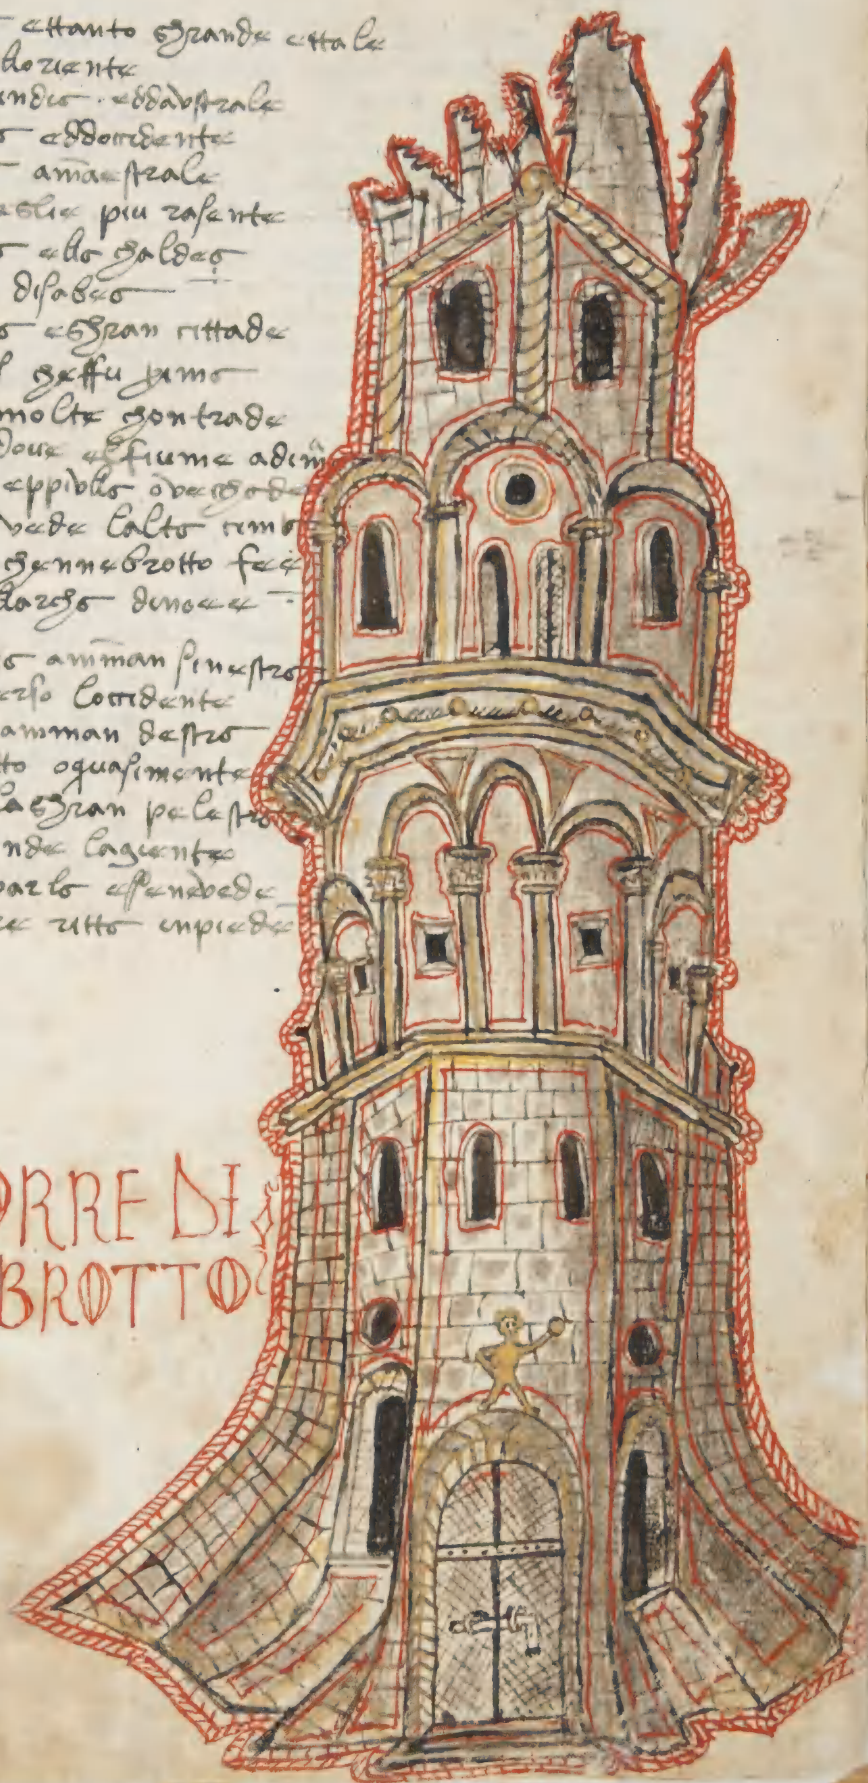 ettanto ghrande ettale
lloriente
indis · eddavstrale
eddoccidente
amaestrale
eslie piu rasente
ello chaldeo
disabeo
eghran cittade
cheffu primo
molte chontrade
dove elfiume adim
eppiollo ovechode
vede lalto cimo
chennebrotto fee
llarcho dinoee
ammam sinestro
erso loccidente
amman destro
tto oquasimente
laghran pelestro
nde lagiente
parlo essenevede
re ritto inpiede
ORRE DI
BROTTO